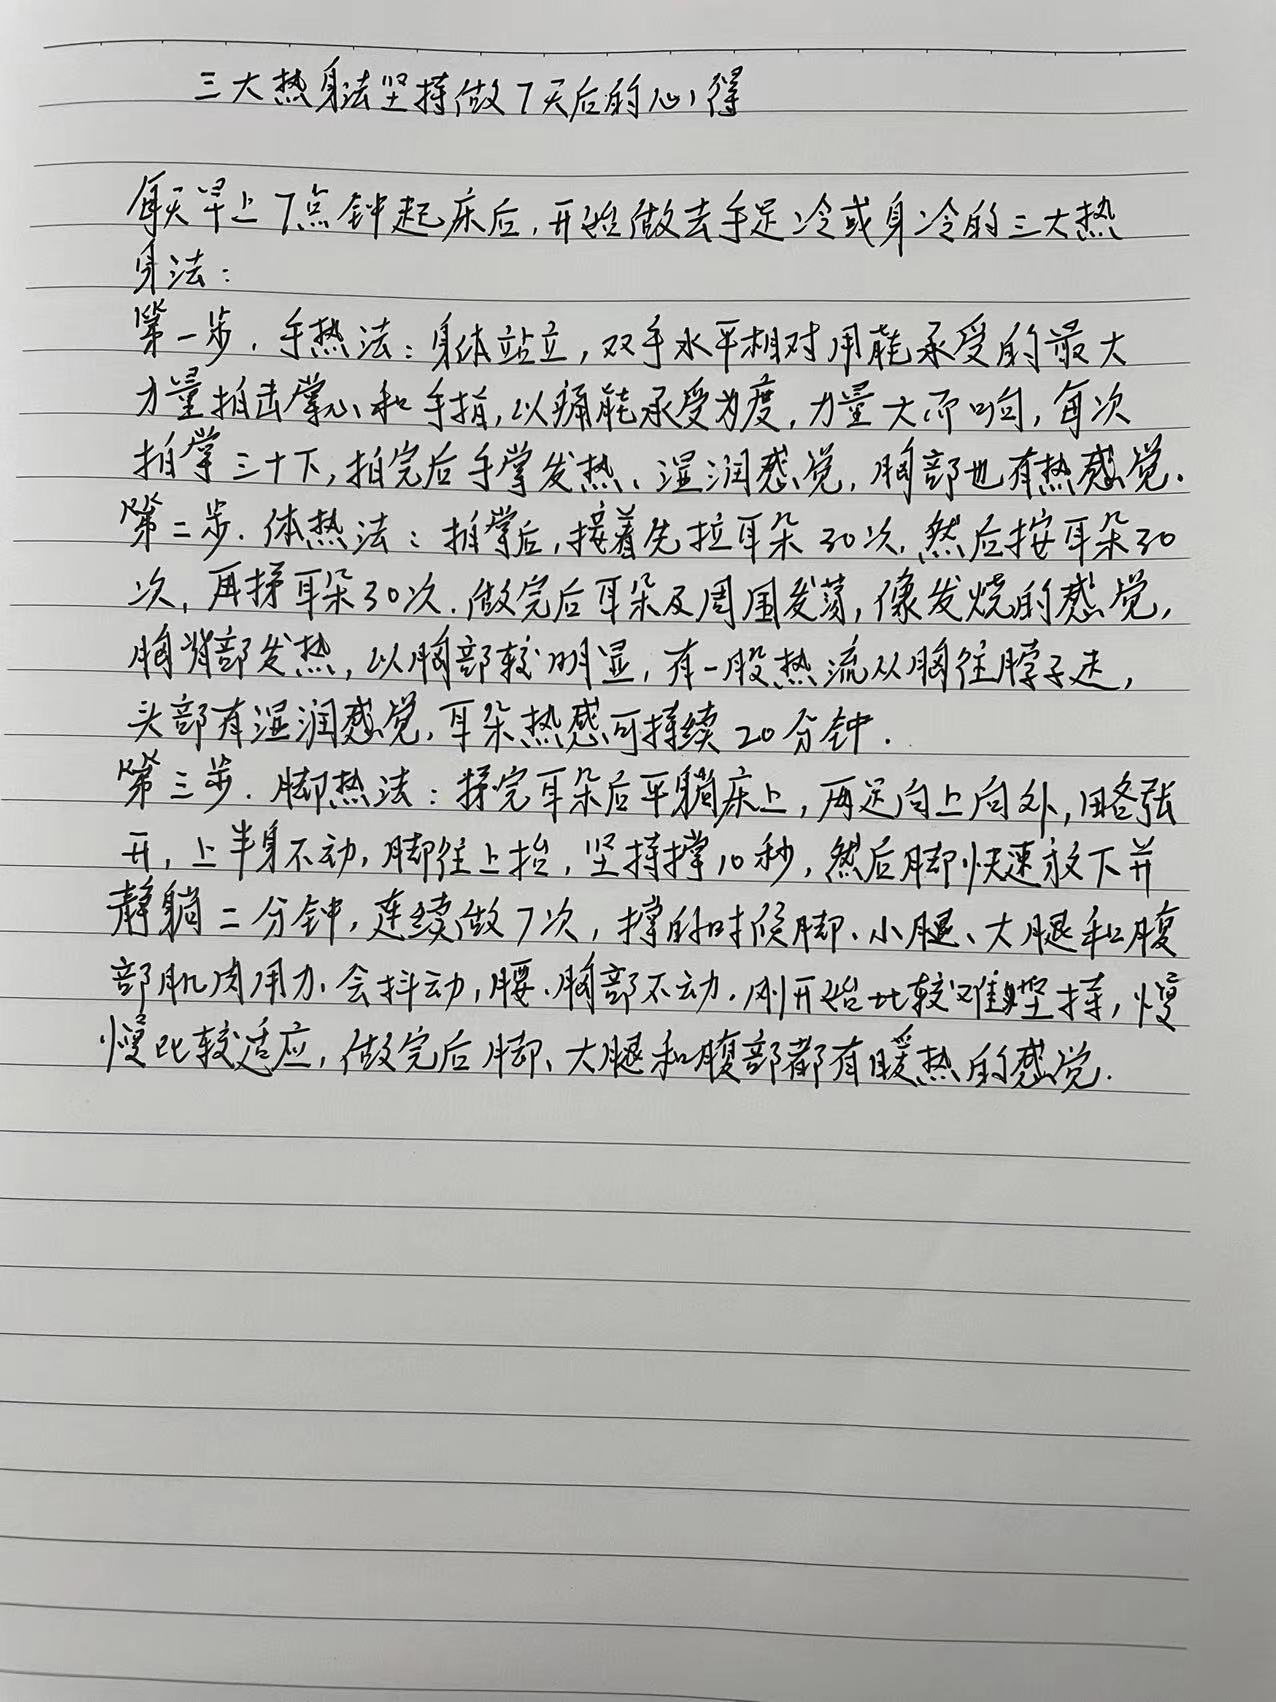 三大热身法坚持做7天后的心得
每天早上7点钟起床后,开始做去手足冷或身冷的三大热
身法:
第一步.手热法:身体站立,双手水平相对用能承受的最大
力量拍击掌心和手指,以痛能承受为度,力量大而响,每次
拍掌三十下,拍完后手掌发热、湿润感觉,胸部也有热感觉.
第二步.体热法:拍掌后,接着先拉耳朵30次,然后按耳朵30
次,再揉耳朵30次.做完后耳朵及周围发荡,像发烧的感觉,
胸背部发热,以胸部较明显,有一股热流从胸往脖子走,
头部有湿润感觉,耳朵热感可持续20分钟.
第三步.脚热法:揉完耳朵后平躺床上,两足向上向外,略张
开,上半身不动,脚往上抬,坚持撑10秒,然后脚快速放下并
静躺二分钟,连续做7次,撑的时候脚、小腿、大腿和腹
部肌肉用力、会抖动,腰、胸部不动.刚开始比较难坚持,慢
慢比较适应,做完后脚、大腿和腹部都有暖热的感觉.